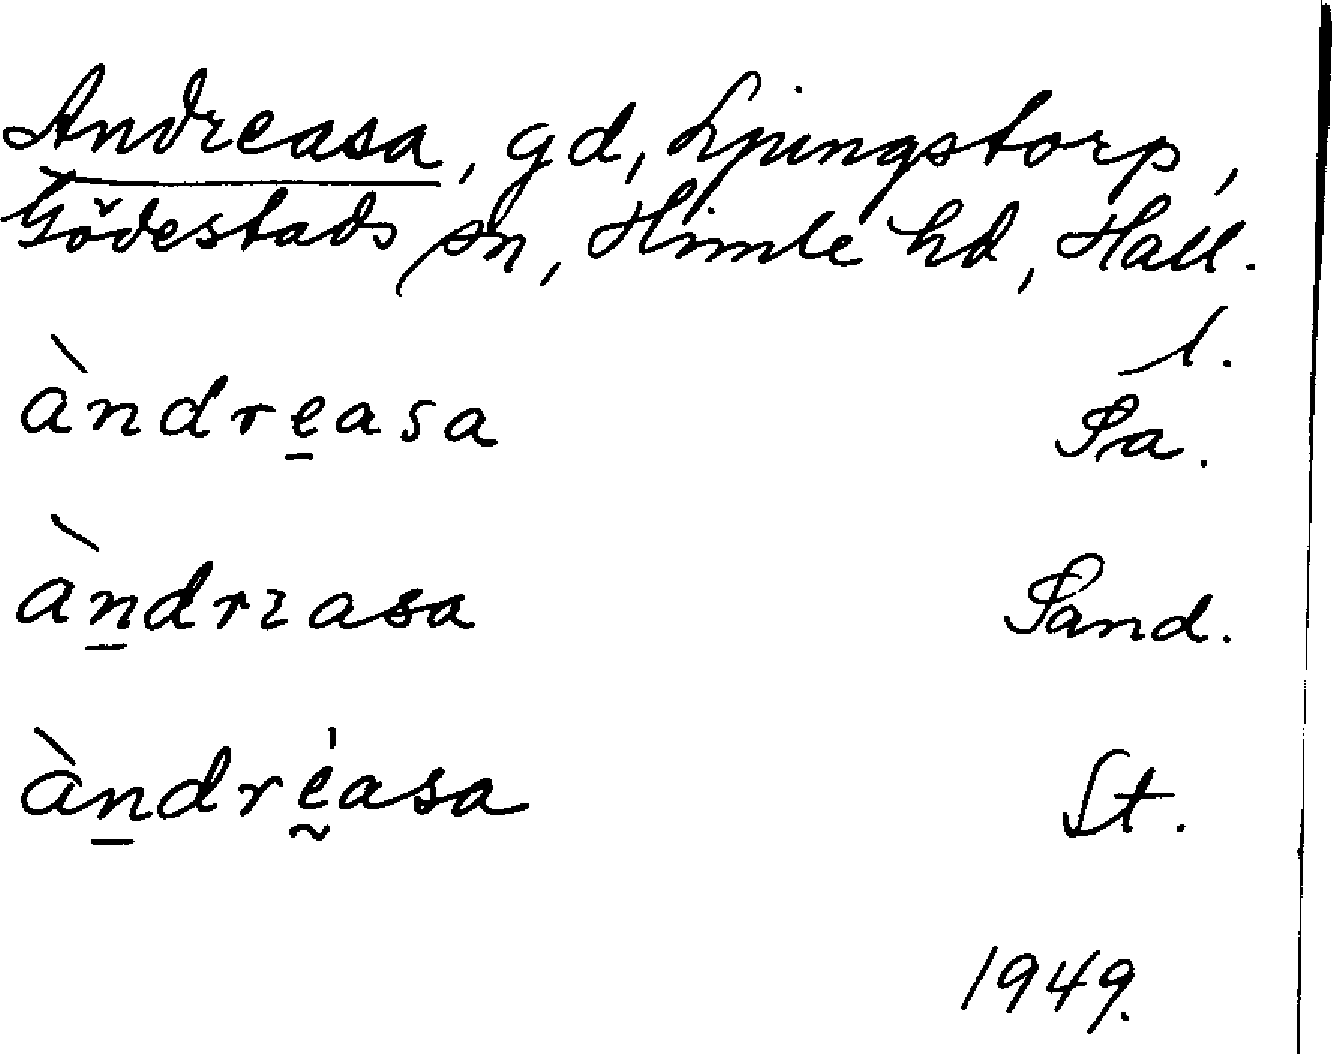 Andreasa, gd, Ljungstorp,
Gödestads sn, Himle hd, Hall.
l.
àndre̲asa Sa.
àn̲drɪasa Sand.
àn̲drḛ́asa St.
1949.